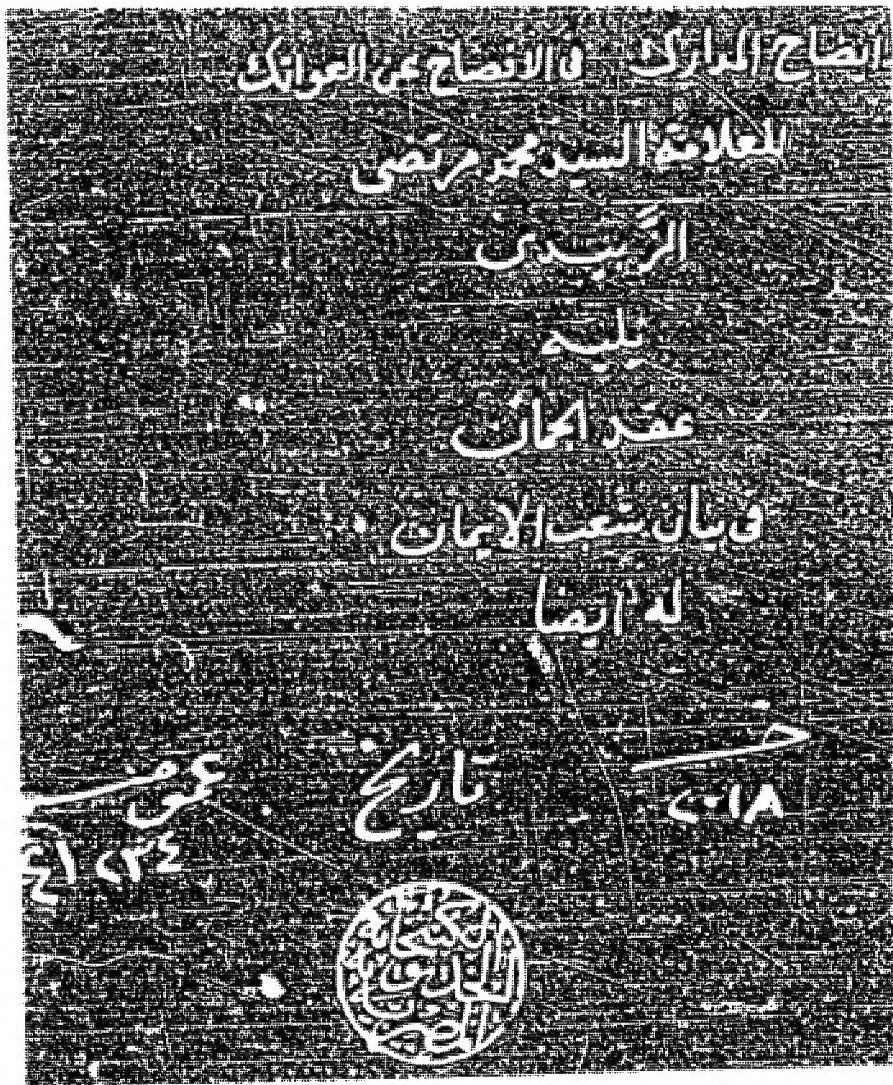 ايضاح المدارك في الافصاح عن العواتك
للعلامة السيد محمد مرتضى
الزَّبيدى
يليه
عقد الجمان
فى بيان شعب الايمان
له ايضا
خـ تاريخ عمـ
٢٠١٨ ٤١٢٣٤
الكتبخانة
الخديوية
المصرية